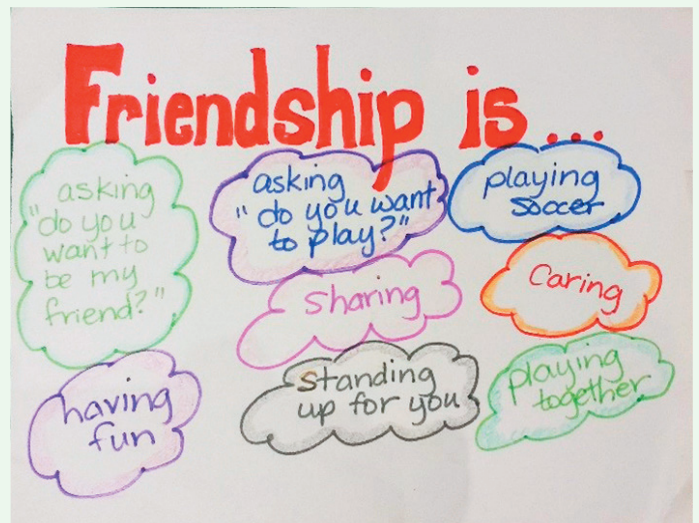 Friendship is...
asking
"do you
want to
be my
friend?"
asking
"do you want
to play?"
playing
soccer
sharing
Caring
having
fun
standing
up for you
playing
together